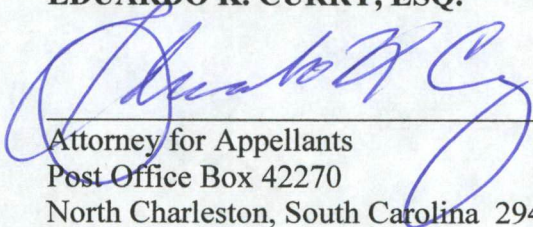 EDUARDO K. CURRY, ESQ.
Eduardo K Curry
Attorney for Appellants
Post Office Box 42270
North Charleston, South Carolina 294